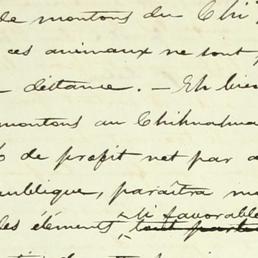 de moutons du Chi
ces animaux ne sont
distance. — Eh bien
moutons au Chihuahua
de profit net par a
publique, paraîtra
les éléments si favorables